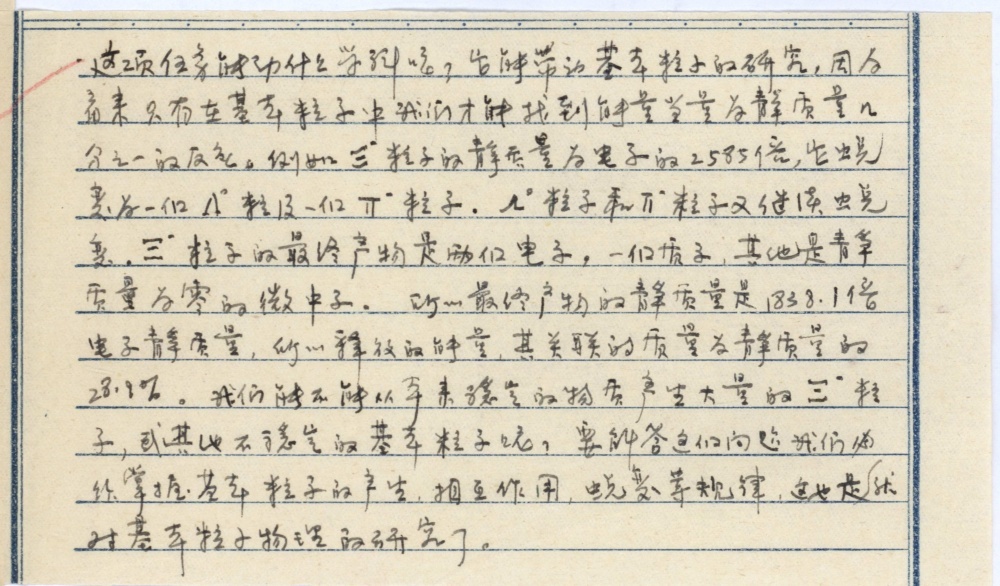 这项任务能动什么学科呢？它能带动基本粒子的研究，因为
看来只有在基本粒子中我们才能找到能量当量为静质量几
分之一的反应。例如 Ξ⁻ 粒子的静质量为电子的2585倍，它蜕
变为一个 Λ° 粒及一个 π⁻ 粒子。Λ° 粒子和 π⁻ 粒子又继续蜕
变。Ξ⁻ 粒子的最终产物是两个电子，一个质子，其他是静
质量为零的微中子。所以最终产物的静质量是1838.1倍
电子静质量，所以释放的能量，其关联的质量为静质量的
28.9%。我们能不能从本来稳定的物质产生大量的 Ξ⁻ 粒
子，或其他不稳定的基本粒子呢？要解答这个问题我们必
须掌握基本粒子的产生，相互作用，蜕变等规律，这也是
对基本粒子物理的研究了。